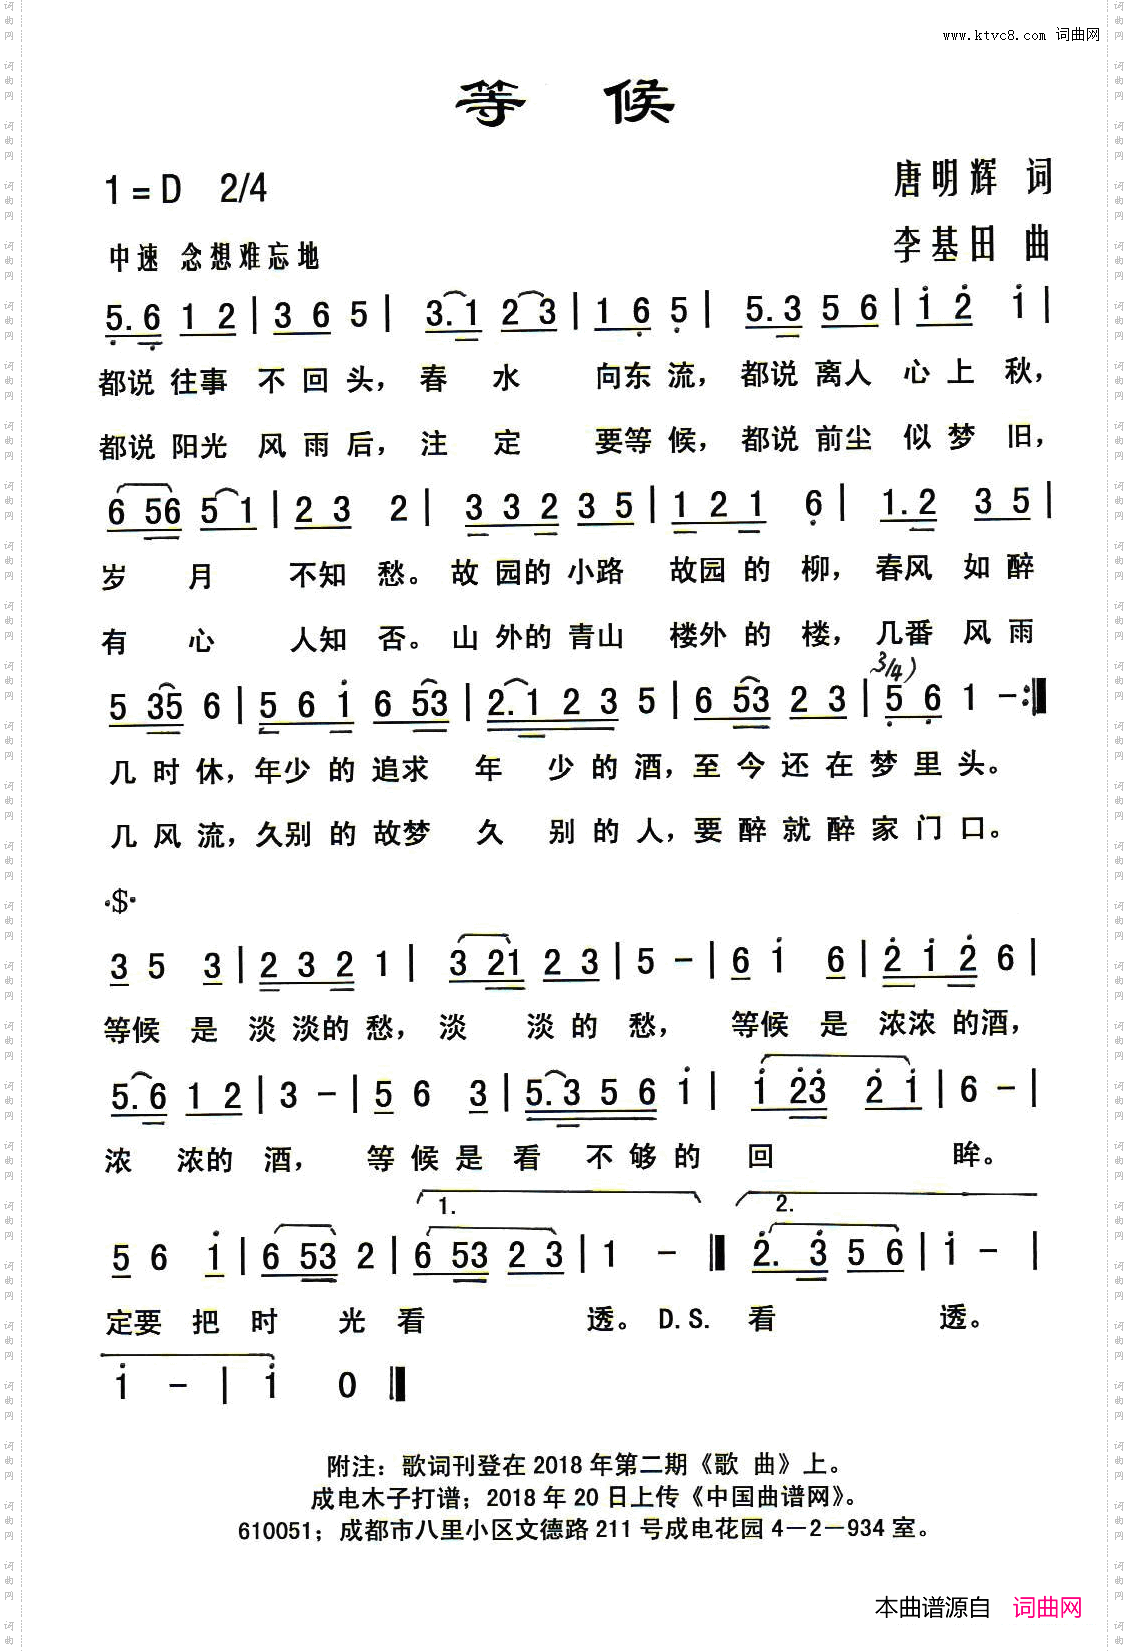 www.ktvc8.com 词曲网
等 候
1=D 2/4
唐明辉 词
中速 念想难忘地
李基田 曲
5.6 1 2 | 3 6 5 | 3.1 2 3 | 1 6 5 | 5.3 5 6 | i 2 i |
都说 往事 不 回 头， 春 水 向东 流， 都说 离人 心 上 秋，
都说 阳光 风 雨 后， 注 定 要等 候， 都说 前尘 似 梦 旧，
6 56 5 1 | 2 3 2 | 3 3 2 3 5 | 1 2 1 6 | 1.2 3 5 |
岁 月 不知 愁。 故 园的 小路 故园 的 柳， 春风 如 醉
有 心 人知 否。 山 外的 青山 楼外 的 楼， 几番 风 雨
3/4)
5 35 6 | 5 6 i 6 53 | 2.1 2 3 5 | 6 53 2 3 | 5 6 1 - :|
几 时 休， 年少 的 追求 年 少 的 酒， 至 今 还 在 梦 里 头。
几 风 流， 久别 的 故梦 久 别 的 人， 要 醉 就 醉 家 门 口。
·$·
3 5 3 | 2 3 2 1 | 3 21 2 3 | 5 - | 6 i 6 | 2 i 2 6 |
等候 是 淡 淡的 愁， 淡 淡 的 愁， 等候 是 浓浓 的酒，
5.6 1 2 | 3 - | 5 6 3 | 5.3 5 6 i | i 23 2 i | 6 - |
浓 浓的 酒， 等 候 是 看 不 够 的 回 眸。
1. 2.
5 6 i | 6 53 2 | 6 53 2 3 | 1 - || 2. 3 5 6 | i - |
定要 把 时 光 看 透。 D.S. 看 透。
i - | i 0 ||
附注：歌词刊登在 2018 年第二期《歌 曲》上。
成电木子打谱；2018 年 20 日上传《中国曲谱网》。
610051；成都市八里小区文德路 211 号成电花园 4－2－934 室。
本曲谱源自 词曲网